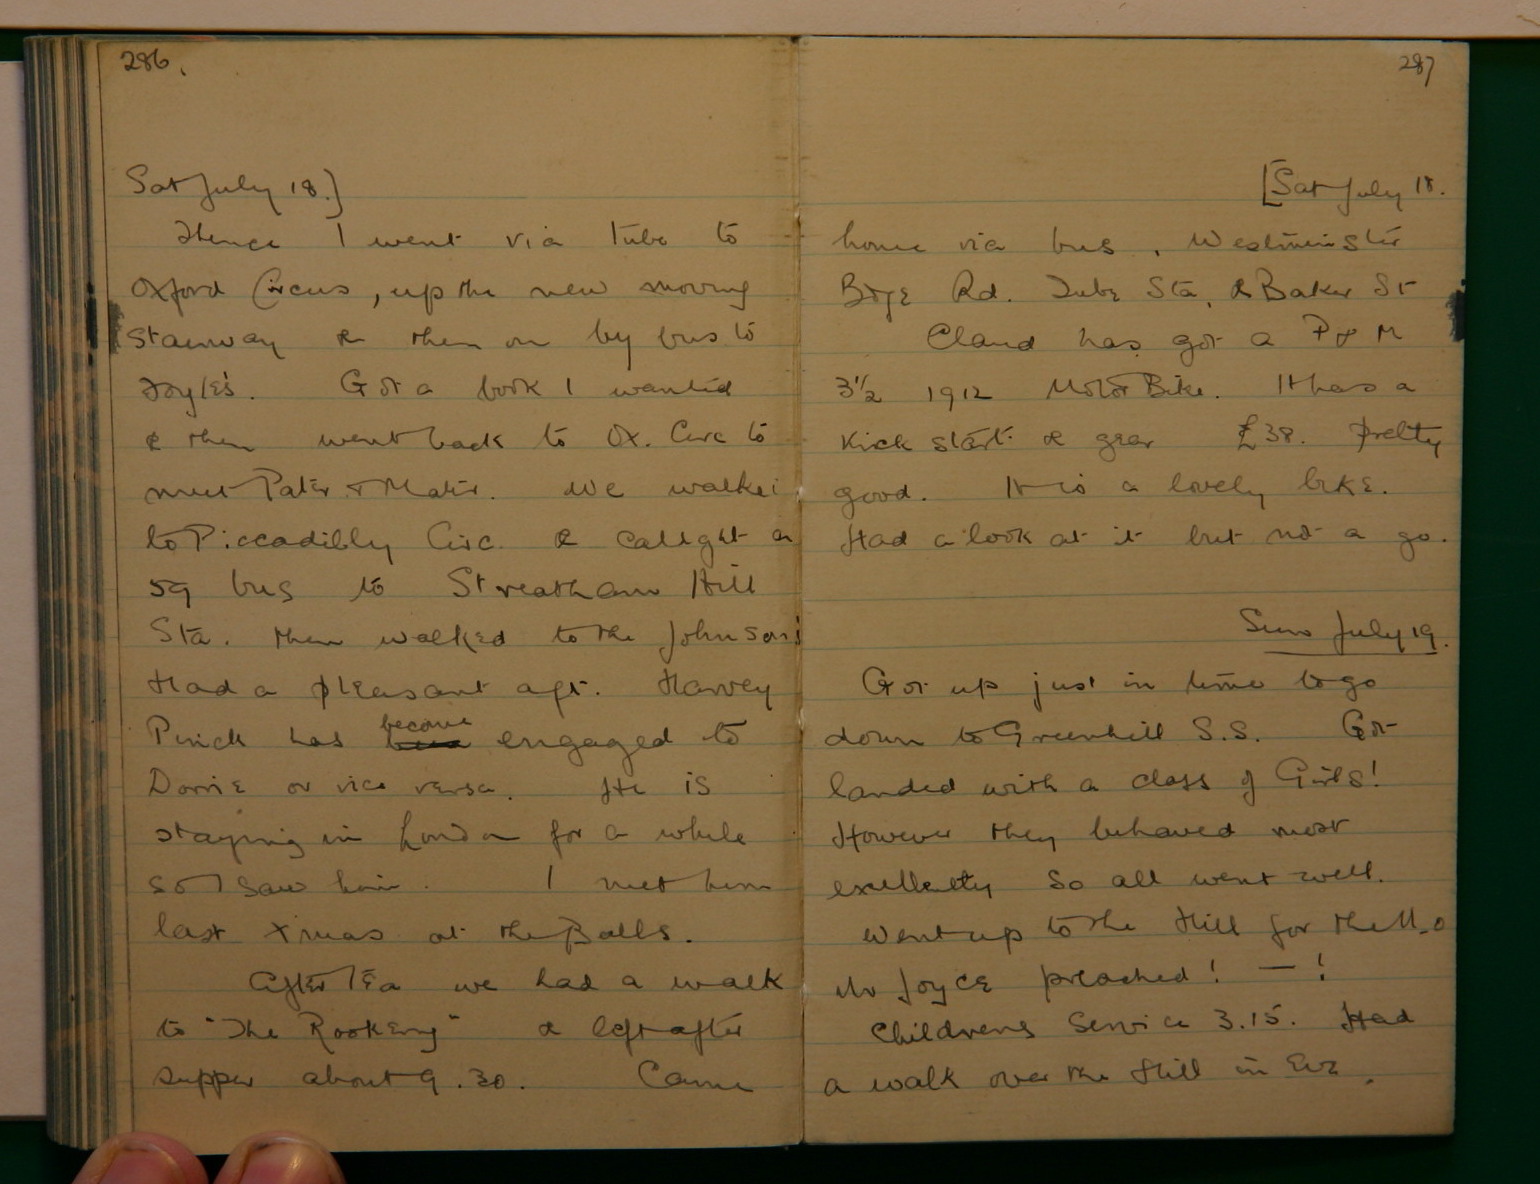 286.
Sat July 18.]
Hence I went via Tube to
Oxford Circus, up the new moving
stairway & then on by bus to
Foyles'. Got a book I wanted
& then went back to Ox. Circ to
meet Pater & Mater. We walked
to Piccadilly Circ. & caught a
59 bus to Streatham Hill
Sta. then walked to the Johnsons
Had a pleasant aft. Harvey
Pinch has become engaged to
Dorrie or vice versa. He is
staying in London for a while
so I saw him. I met him
last Xmas at the Balls.
After Tea we had a walk
to "The Rookery" & left after
supper about 9.30. Came
287
[Sat July 18.
home via bus, Westminster
Bdge Rd. Tube Sta, & Baker St
Claud has got a P & M
3½ 1912 Motor Bike. It has a
kick start & gear £38. Pretty
good. It is a lovely bike.
Had a look at it but not a go.
Sun July 19.
Got up just in time to go
down to Greenhill S.S. Got
landed with a class of Girls!
However they behaved most
excellently so all went well.
Went up to the Hill for the
Mr Joyce preached! — !
Childrens Service 3.15. Had
a walk over the Hill in Eve.